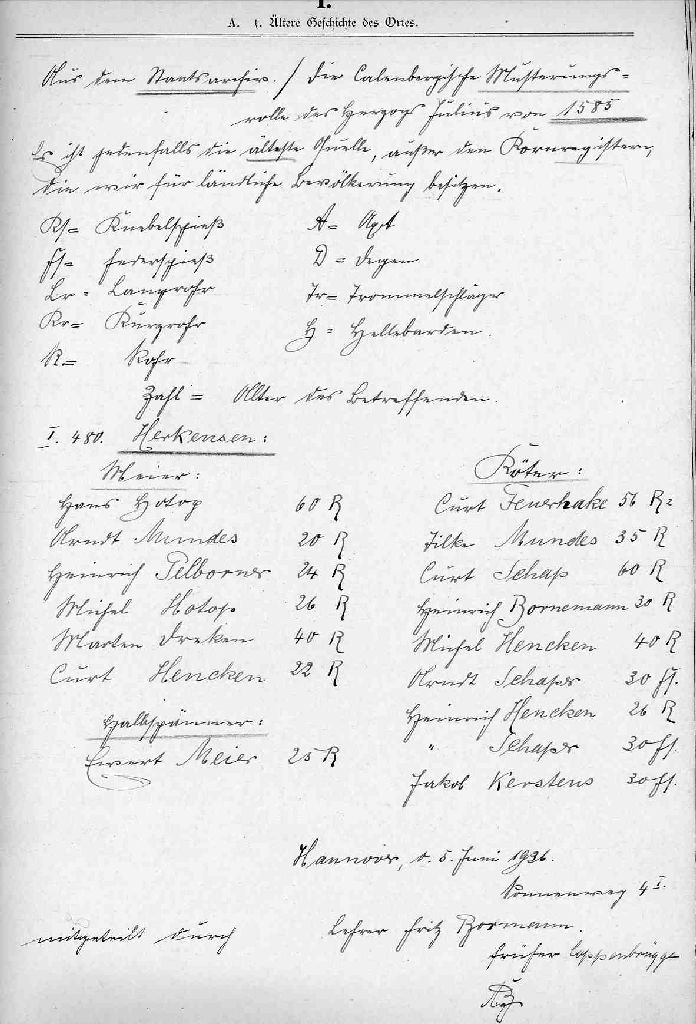 I.
A. 1. Ältere Geschichte des Ortes.
Aus dem Staatsarchiv. / Die Calenbergische Musterungs-
rolle des Herzogs Julius von 1585
Es ist jedenfalls die älteste Quelle, außer den Kornregistern,
die wir für ländliche Bevölkerung besitzen.
Ks = Knebelspieß
A = Axt
Fs = Federspieß
D = Degen
Lr = Langrohr
Tr = Trommelschläger
Kr = Kurzrohr
H = Hellebarden.
R = Rohr
Zahl = Alter des Betreffenden.
I. 480. Herkensen:
Meier:
Hans Hotop 60 R
Arndt Mundes 20 R
Heinrich Pelbornes 24 R
Michel Hotop 26 R
Marten Dreken 40 R
Curt Hencken 22 R
Halbspänner:
Ewert Meier 25 R
Köter:
Curt Feuerhake 56 R
Tilke Mundes 35 R
Curt Schap 60 R
Heinrich Bornemann 30 R
Michel Hencken 40 R
Arndt Schaper 30 Fs.
Heinrich Hencken 26 R
" Schaper 30 Fs.
Jakob Kerstens 30 Fs.
Hannover, d. 5. Juni 1936.
Sonnenweg 4 I.
mitgeteilt durch Lehrer Fritz Bormann.
früher Coppenbrügge